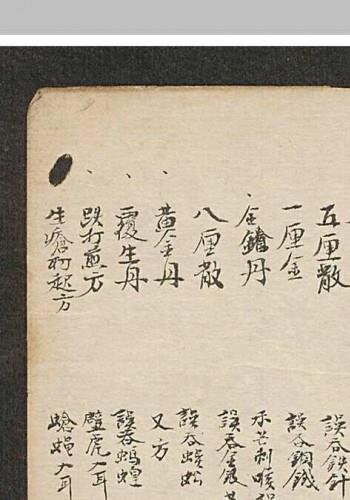 五厘散
一厘金
金鎗丹
八厘散
黃金丹
覆生丹
跌打煎方
生瘡初起方
誤吞鉄針
誤吞銅錢
禾芒刺喉
誤吞金銀
誤吞蜈蚣
又方
誤吞螞蝗
壁虎入耳
螥蝇入耳